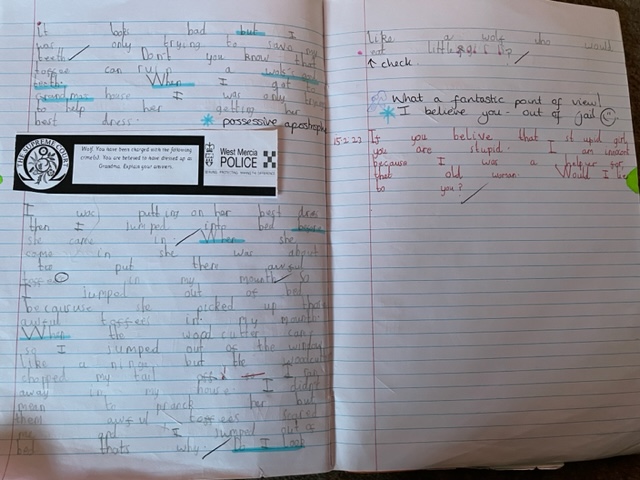 It looks bad but I
was only trying to save my
teeth Don't you know that
toffee can ruin a wolf's
teeth. When I got to
grandmas house I was only trying
to help her getting her
best dress. * possessive apostrophe
THE SUPREME COURT
Wolf. You have been charged with the following
crime(s). You are believed to have dressed up as
Grandma. Explain your answers.
West Mercia
POLICE
I was putting on her best dress
then I jumped into bed before
she came in When she
came in she was about
too put there awful
in my mouth So
I jumped out of bed
becauuse she picked up those
awful toffees in my mouth
When the wood cutter came
so I jumped out of the window
like a ninga but the woodcutter
chopped my tail off I ran
away in my house I didnt
mean to pranck her but
them awful toffees scared
me and I jumped out of
bed thats why. If I look
Like a wolf who would
eat little girls?
↑ check.
What a fantastic point of view!
* I believe you - out of jail
15.2.22 If you belive that stupid girl
you are stupid. I am inocent
because I was a helper for
that old woman. Would I lie
to you?